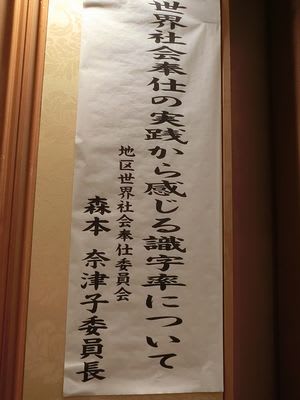 世界社会奉仕の実践から感じる識字率について
地区世界社会奉仕委員会
森本 奈津子委員長